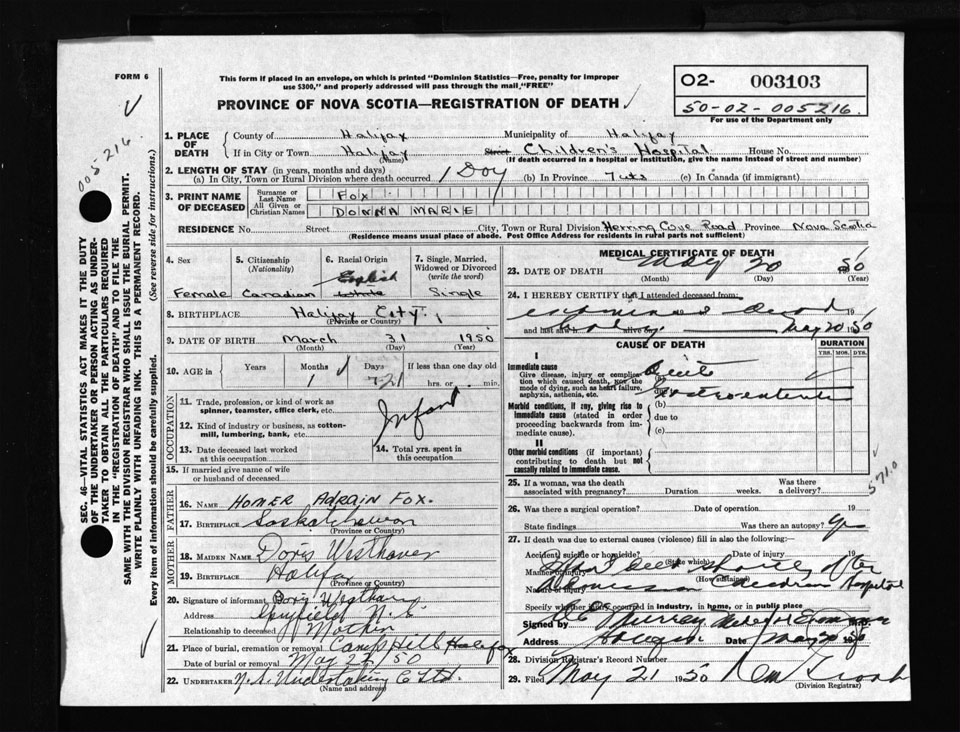 FORM 6
This form if placed in an envelope, on which is printed "Dominion Statistics—Free, penalty for improper
use $300," and properly addressed will pass through the mail, "FREE"
PROVINCE OF NOVA SCOTIA—REGISTRATION OF DEATH
02- 003103
50-02-005216
For use of the Department only
005216
1. PLACE OF DEATH
County of Halifax Municipality of Halifax
If in City or Town Halifax Street Children's Hospital House No.
(Name) (If death occurred in a hospital or institution, give the name instead of street and number)
2. LENGTH OF STAY (in years, months and days)
(a) In City, Town or Rural Division where death occurred 1 Day (b) In Province (c) In Canada (if immigrant)
3. PRINT NAME OF DECEASED
Surname or Last Name FOX
All Given or Christian Names DONNA MARIE
RESIDENCE No. Street City, Town or Rural Division Herring Cove Road Province Nova Scotia
(Residence means usual place of abode. Post Office Address for residents in rural parts not sufficient)
4. Sex Female
5. Citizenship (Nationality) Canadian
6. Racial Origin English White
7. Single, Married, Widowed or Divorced (write the word) Single
8. BIRTHPLACE Halifax City
(Province or Country)
9. DATE OF BIRTH March 31 1950
(Month) (Day) (Year)
10. AGE in Years Months Days If less than one day old
1 21 hrs. or min.
OCCUPATION
11. Trade, profession, or kind of work as
spinner, teamster, office clerk, etc.
Infant
12. Kind of industry or business, as cotton-
mill, lumbering, bank, etc.
13. Date deceased last worked
at this occupation
14. Total yrs. spent in
this occupation
15. If married give name of wife
or husband of deceased
FATHER
16. NAME Homer Adrain Fox.
17. BIRTHPLACE Saskatchewan
(Province or Country)
MOTHER
18. MAIDEN NAME Doris Westhaver
19. BIRTHPLACE Halifax
(Province or Country)
20. Signature of informant Doris Westhaver
Address Spryfield N.S
Relationship to deceased Mother
21. Place of burial, cremation or removal Camp Hill Halifax
Date of burial or removal May 22/50
22. UNDERTAKER N.S. Undertaking Co Ltd.
(Name and address)
MEDICAL CERTIFICATE OF DEATH
23. DATE OF DEATH May 20 1950
(Month) (Day) (Year)
24. I HEREBY CERTIFY that I attended deceased from:
examined dead 19
and last saw alive on May 20 1950
CAUSE OF DEATH
DURATION
YRS. MOS. DYS.
I
Immediate cause
Give disease, injury or complica-
tion which caused death, not the
mode of dying, such as heart failure,
asphyxia, asthenia, etc.
Acute
due to
Gastroenteritis
Morbid conditions, if any, giving rise to
immediate cause (stated in order
proceeding backwards from im-
mediate cause).
(b)
due to
(c)
II
Other morbid conditions (if important)
contributing to death but not
causally related to immediate cause.
5710
25. If a woman, was the death
associated with pregnancy? Duration weeks. Was there
a delivery?
26. Was there a surgical operation? Date of operation 19
State findings Was there an autopsy? Yes
27. If death was due to external causes (violence) fill in also the following:
Accident, suicide or homicide? Date of injury 19
(State which)
Manner of injury
(How sustained)
Nature of injury
shortly after
Hospital
Specify whether injury occurred in industry, in home, or in public place
Signed by Murray
Address Halifax Date May 20
28. Division Registrar's Record Number
29. Filed May 21 1950
(Division Registrar)
SEC. 46—VITAL STATISTICS ACT MAKES IT THE DUTY
OF THE UNDERTAKER OR PERSON ACTING AS UNDER-
TAKER TO OBTAIN ALL THE PARTICULARS REQUIRED
IN THE "REGISTRATION OF DEATH" AND TO FILE THE
SAME WITH THE DIVISION REGISTRAR WHO SHALL ISSUE THE BURIAL PERMIT.
WRITE PLAINLY WITH UNFADING INK. THIS IS A PERMANENT RECORD.
Every item of information should be carefully supplied. (See reverse side for instructions.)